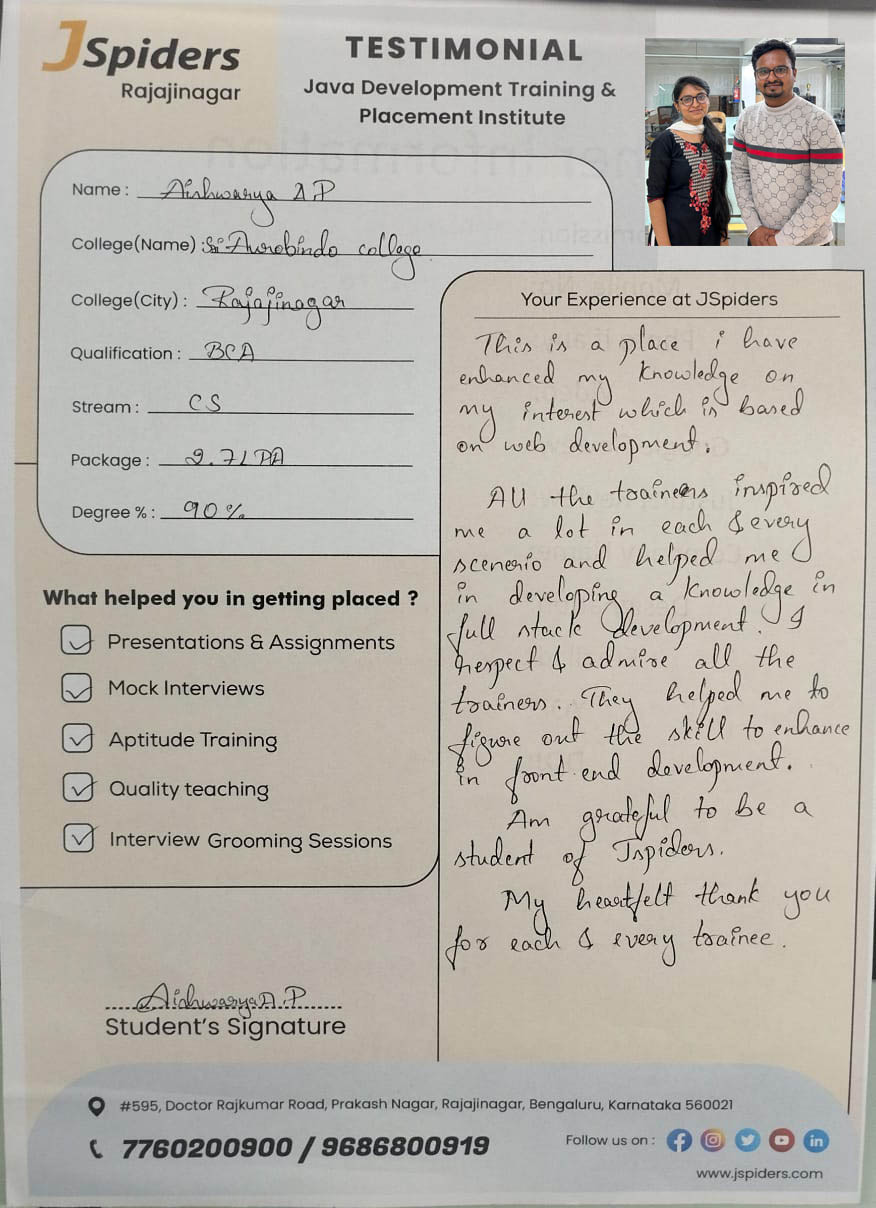 JSpiders
Rajajinagar
TESTIMONIAL
Java Development Training &
Placement Institute
Name : Aishwarya A P
College(Name) : Sri Aurobindo college
College(City) : Rajajinagar
Qualification : BCA
Stream : CS
Package : 2.7LPA
Degree % : 90 %
What helped you in getting placed ?
Presentations & Assignments
Mock Interviews
Aptitude Training
Quality teaching
Interview Grooming Sessions
Aishwarya A.P
Student's Signature
Your Experience at JSpiders
This is a place i have
enhanced my knowledge on
my interest which is based
on web development.
All the traineers inspired
me a lot in each & every
scenerio and helped me
in developing a knowledge in
full stack development. I
respect & admire all the
trainers. They helped me to
figure out the skill to enhance
in front end development.
Am grateful to be a
student of Jspiders.
My heartfelt thank you
for each & every trainee.
#595, Doctor Rajkumar Road, Prakash Nagar, Rajajinagar, Bengaluru, Karnataka 560021
7760200900 / 9686800919
Follow us on :
www.jspiders.com